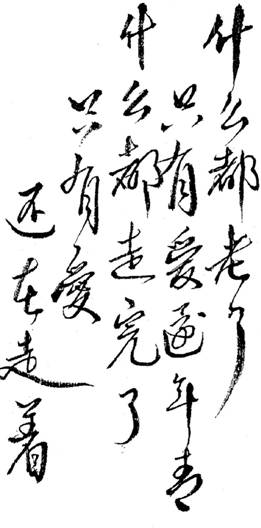 什么都老了
只有爱还年青
什么都走完了
只有爱
还在走着